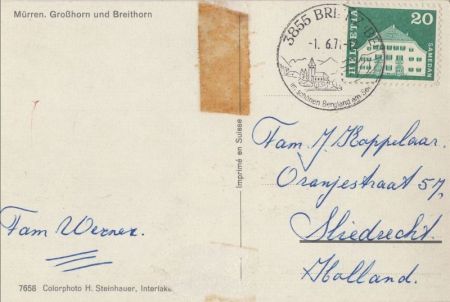 Mürren. Großhorn und Breithorn
3855 BRI
-1. 6.7
im schönen Bergland am See
HELVETIA
20
SAMEDAN
Imprimé en Suisse
Fam. J. Kappelaar.
Oranjestraat 57,
Sliedrecht.
Holland.
Fam Werner.
7658 Colorphoto H. Steinhauer, Interlake